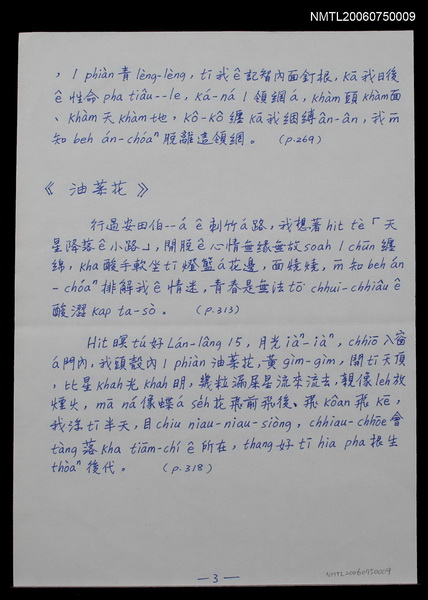 NMTL20060750009
，1 phiàn 青 lèng-lèng，tī 我 ê 記智內面釘根，kā 我日後
ê 性命 pha tiâu--le，ká-ná 1 領網á，khàm 頭 khàm 面
、khàm 天 khàm 地，kô-kô 纏 kā 我綑縛 ân-ân，我 m̄
知 beh án-chóaⁿ 脫離這領網。 (p.269)
《 油菜花 》
行過安田伯--á ê 刺竹á路，我想著 hit tè「天
星降落 ê 小路」，開脫 ê 心情無緣無故 soah 1 chūn 纏
綿，kha 酸手軟坐 tī 燈籃á花邊，面燒燒，m̄ 知 beh án
-chóaⁿ 排解我 ê 情迷，青春是無法 tō͘ chhui-chhiâu ê
酸澀 kap ta-sò。 (p.313)
Hit 暝 tú 好 Lán-lâng 15，月光 iàⁿ-iàⁿ，chhiō 入窗
á門內，我頭殼內 1 phiàn 油菜花，黃 gìm-gìm，開 tī 天頂，
比星 khah 光 khah 明，幾粒滿尾星流來流去，親像 leh 放
煙火，mā ná 像蝶á se̍h 花飛前飛後、飛 kôan 飛 kē，
我浮 tī 半天，目chiu niau-niau-siòng，chhiau-chhōe 會
tàng 落 kha tiām-chí ê 所在，thang 好 tī hia pha 根生
thòaⁿ 後代。 (p.318)
—3—
NMTL20060750009